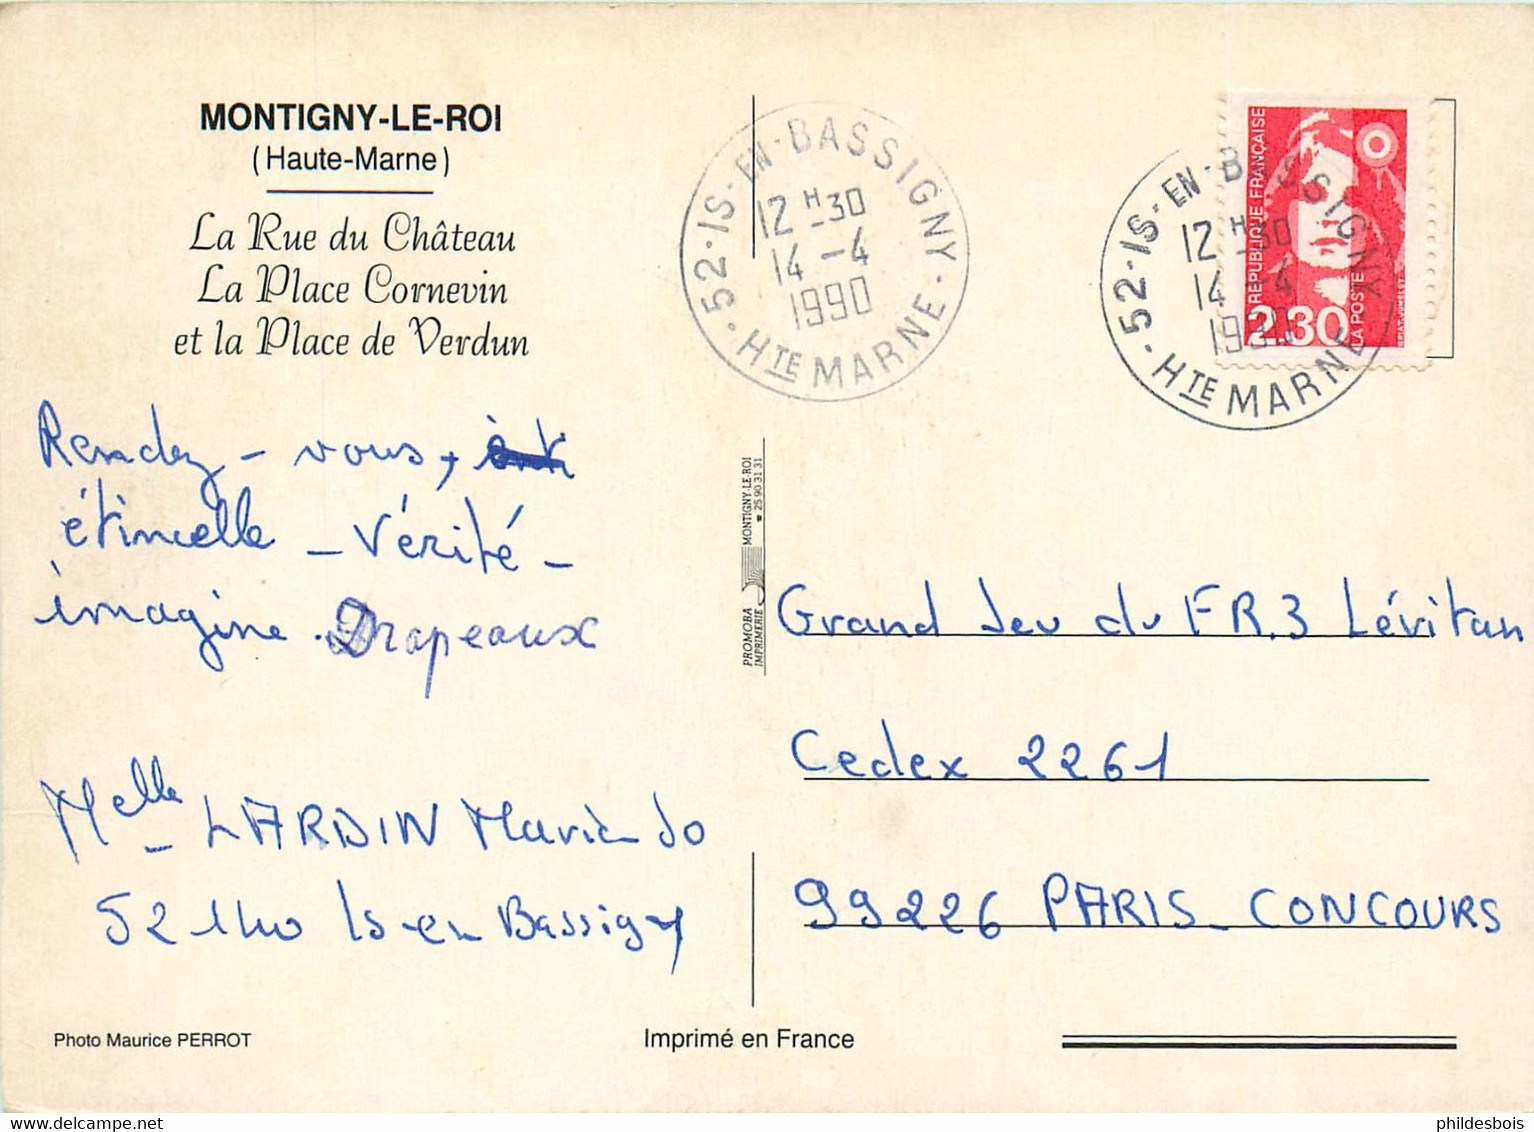 MONTIGNY-LE-ROI
(Haute-Marne)
La Rue du Château
La Place Cornevin
et la Place de Verdun
52 · IS - EN - BASSIGNY ·
12 H -30
14 -4
1990
· HTE MARNE ·
52 · IS - EN - BASSIGNY
12 H -30
14 -4
1990
· HTE MARNE
REPUBLIQUE FRANÇAISE
2.30
LA POSTE
Rendez - vous,
étincelle - Vérité -
imagine. Drapeaux
Melle LARDIN Marie Jo
52140 Is en Bassigny
PROMOBA
IMPRIMERIE
MONTIGNY-LE-ROI
☎ 25 90 31 31
Grand Jeu du FR.3 Lévitan
Cedex 2261
99226 PARIS - CONCOURS
Photo Maurice PERROT
Imprimé en France
phildesbois